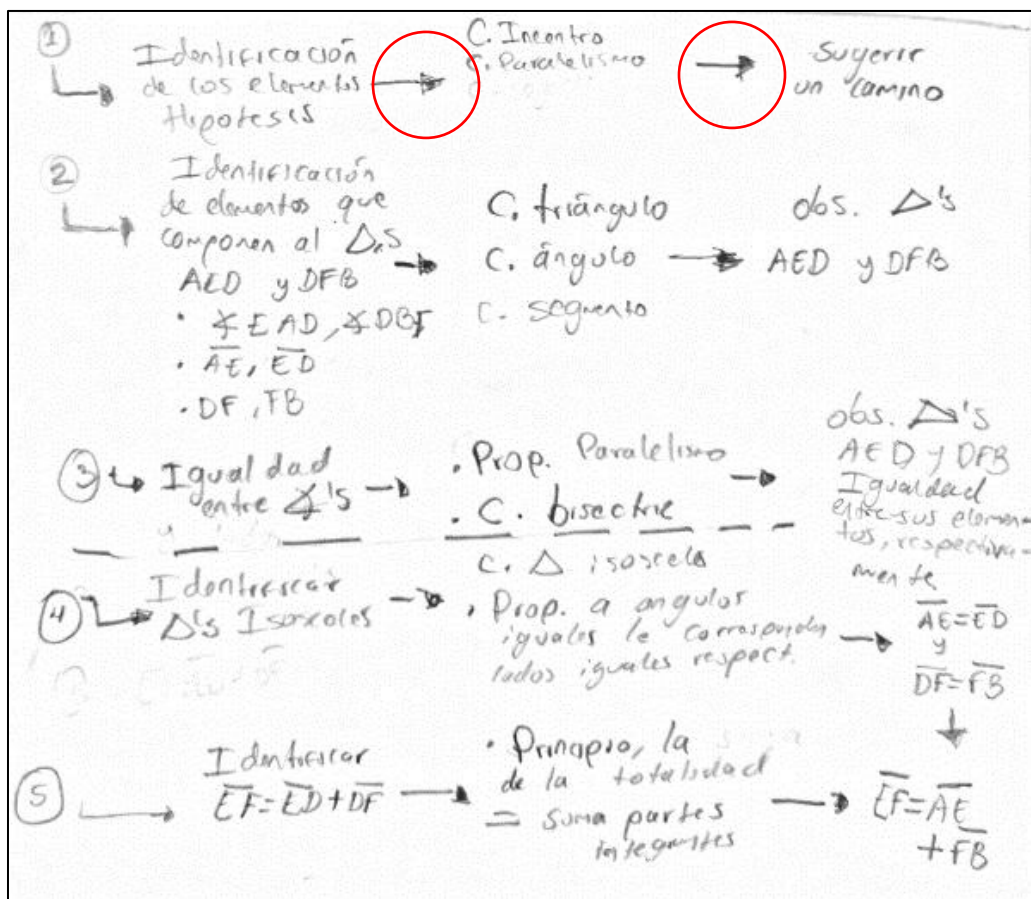 1
Identificación
de los elementos
Hipotesis
C. Incentro
C. Paralelismo
Sugerir
un camino
2
Identificación
de elementos que
componen al Δ.s
AED y DFB
· ∡EAD, ∡DBF
· A̅E̅, E̅D̅
· DF, FB
C. triángulo
C. ángulo
C. segmento
obs. Δ's
AED y DFB
3
Igualdad
entre ∡'s
· Prop. Paralelismo
· C. bisectriz
obs. Δ's
AED y DFB
Igualdad
entre sus elemen-
tos, respectiva-
mente
4
Identificar
Δ's Isosceles
C. Δ isosceles
· Prop. a angulos
iguales le corresponden
lados iguales respect.
A̅E̅=E̅D̅
y
D̅F̅=F̅B̅
5
Identificar
E̅F̅=E̅D̅+D̅F̅
· Principio, la
de la totalidad
= suma partes
integrantes
E̅F̅=A̅E̅
+F̅B̅